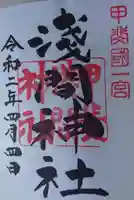 甲斐國一宮
淺間神社
令和二年四月四日